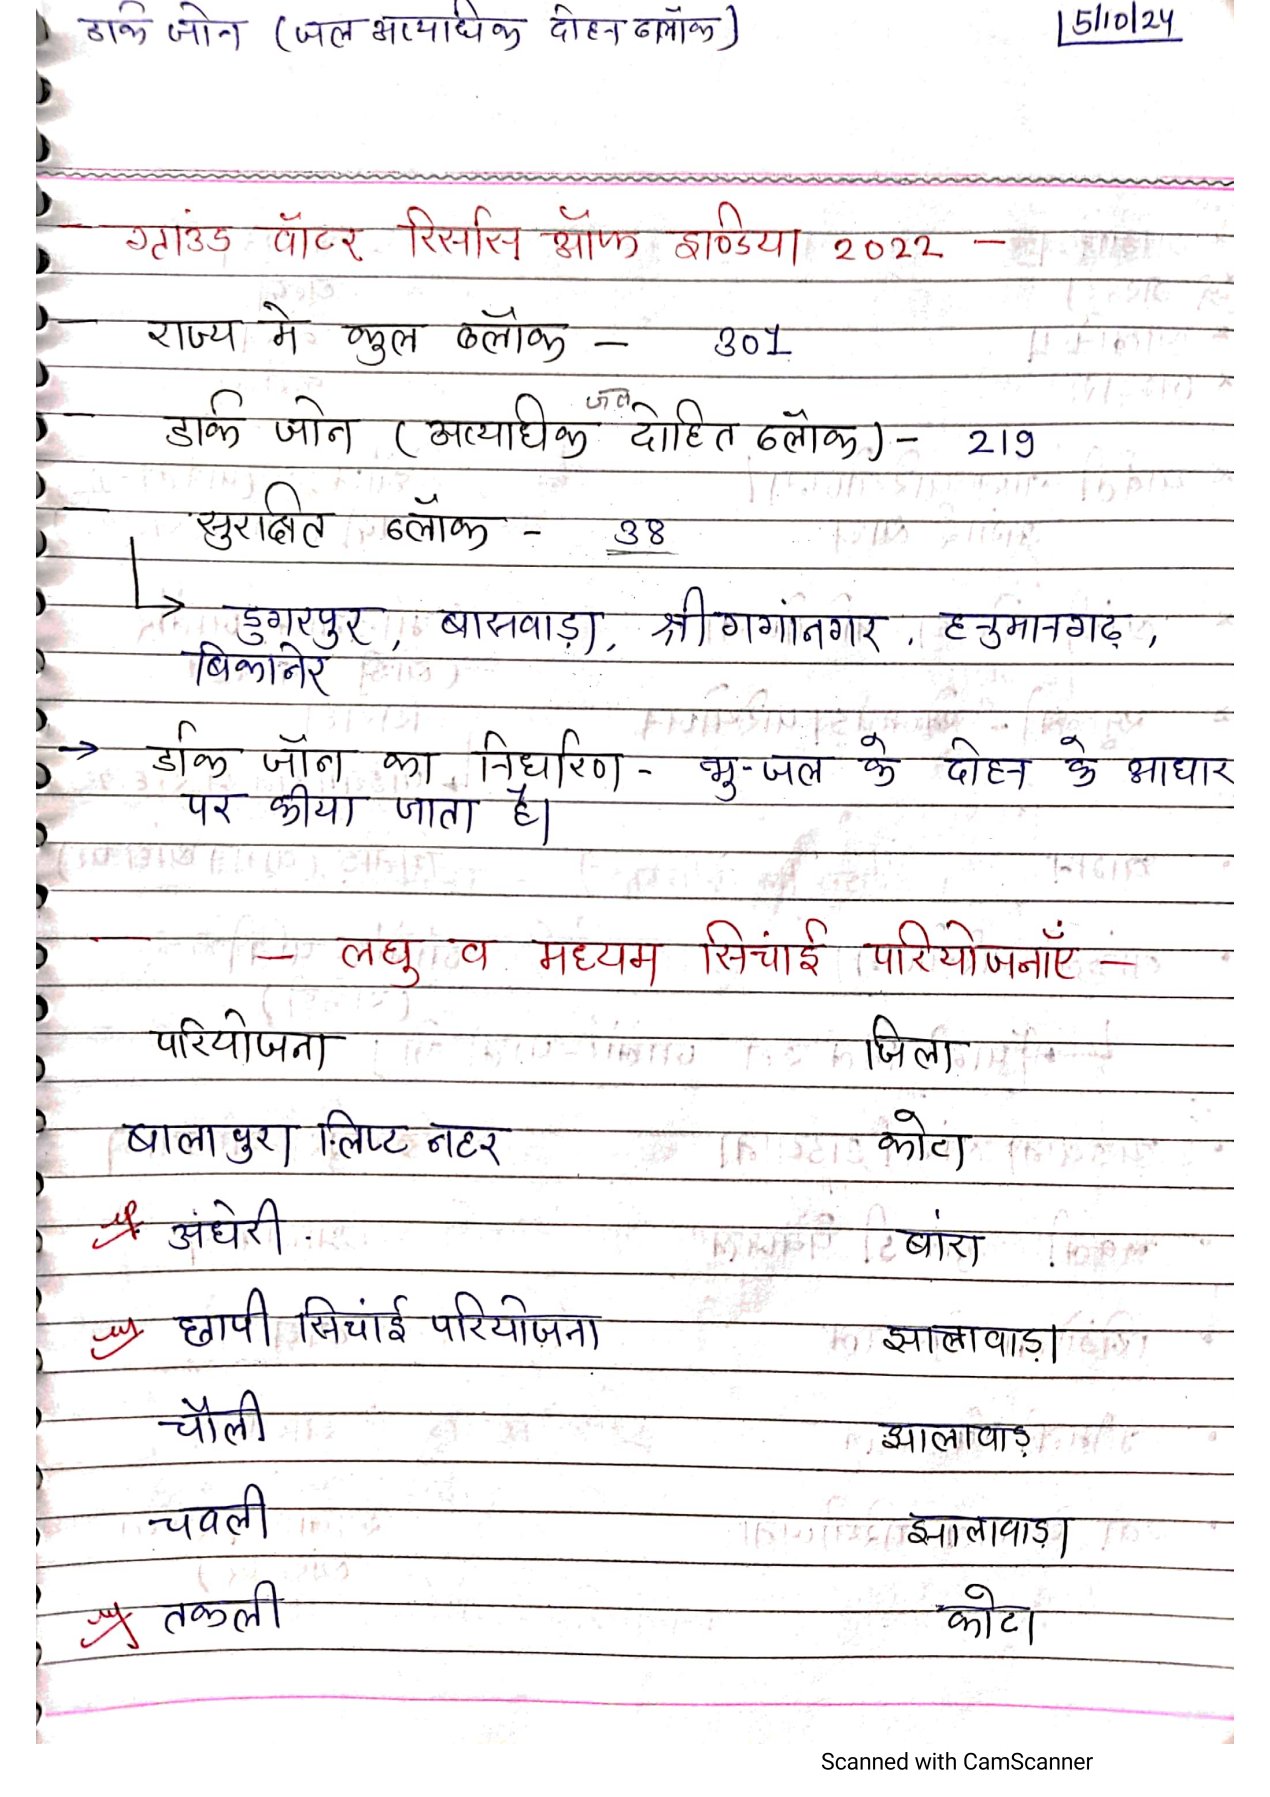 डार्क जोन (जल अत्याधिक दोहन ब्लॉक)
5/10/24
ग्राउंड वॉटर रिसोर्स ऑफ इण्डिया 2022 –
राज्य मे कुल ब्लॉक – 301
जल
डार्क जोन (अत्याधिक दोहित ब्लॉक) – 219
सुरक्षित ब्लॉक - 38
डुगरपुर, बासवाड़ा, श्री गगांनगर, हनुमानगढ़,
बिकानेर
→ डार्क जॉन का निर्धारण - भु-जल के दोहन के आधार
पर कीया जाता है।
– लघु व मध्यम सिचांई परियोजनाएँ –
परियोजना जिला
बालापुरा लिफ्ट नहर कोटा
अंधेरी. बांरा
छापी सिचांई परियोजना झालावाड़ा
चौली झालावाड़
चवली झालावाड़ा
तकली कोटा
Scanned with CamScanner